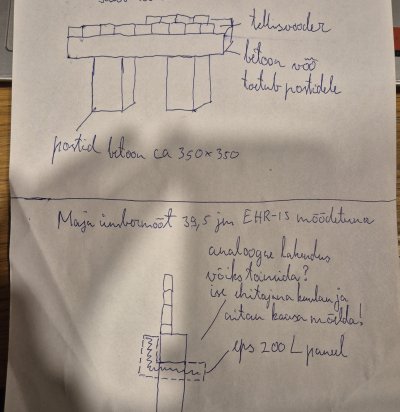 tellisvooder
betoon vöö
toetub postidele
postid betoon ca 350x350
Maja ümbermõõt 39,5 jm EHR-is mõõdetuna
analoogne lahendus
võiks toimida?
ise ehitajana kuulan ja
aitan kaasa mõelda!
eps 200 L paneel